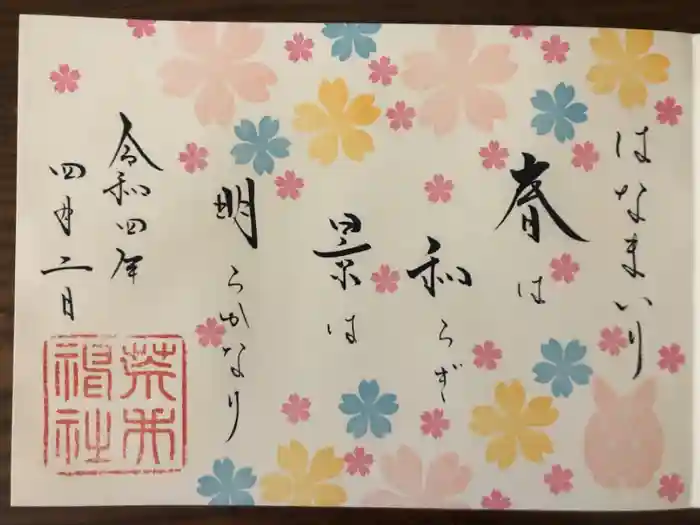 はなまいり
春は
和らぎ
景は
明らかなり
令和四年
四月二日
荒木神社